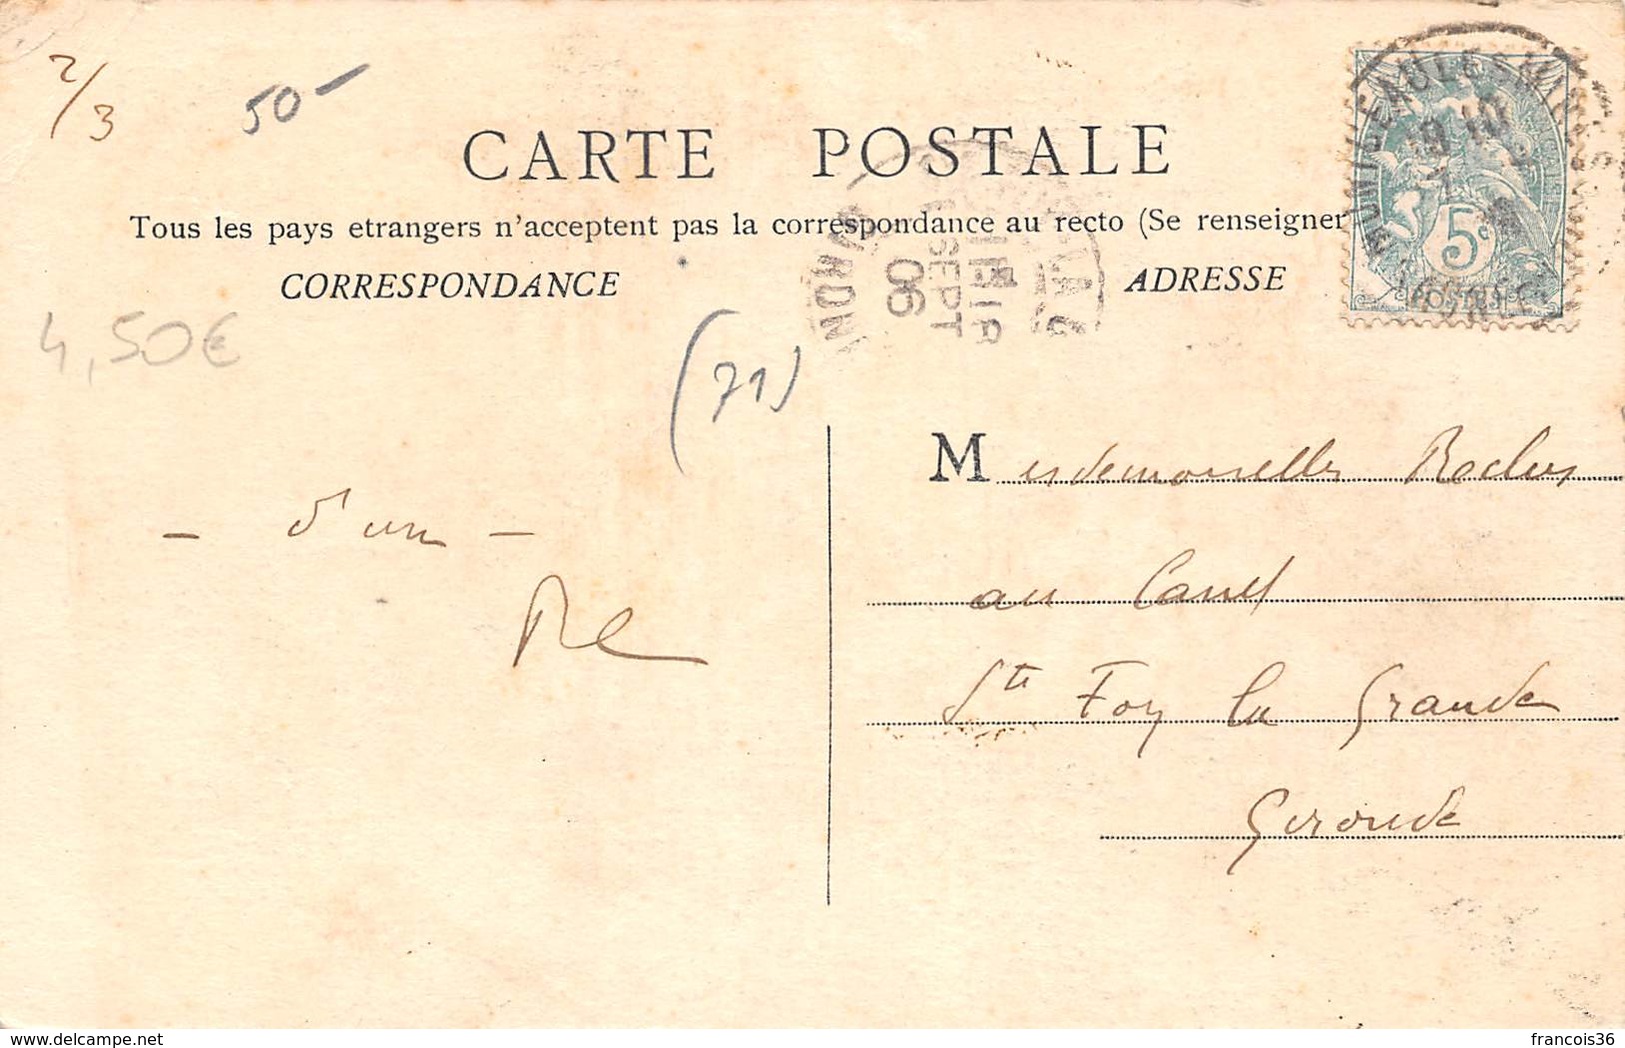 2/3
50-
CARTE POSTALE
Tous les pays etrangers n'acceptent pas la correspondance au recto (Se renseigner
CORRESPONDANCE
ADRESSE
MONTCEAU-LES-MINES
5c
POSTES
SEPT
06
4,50€
(71)
Mesdemoiselles Reclus
- d'un -
au Canet
Ste Foy la Grande
Gironde
francois36